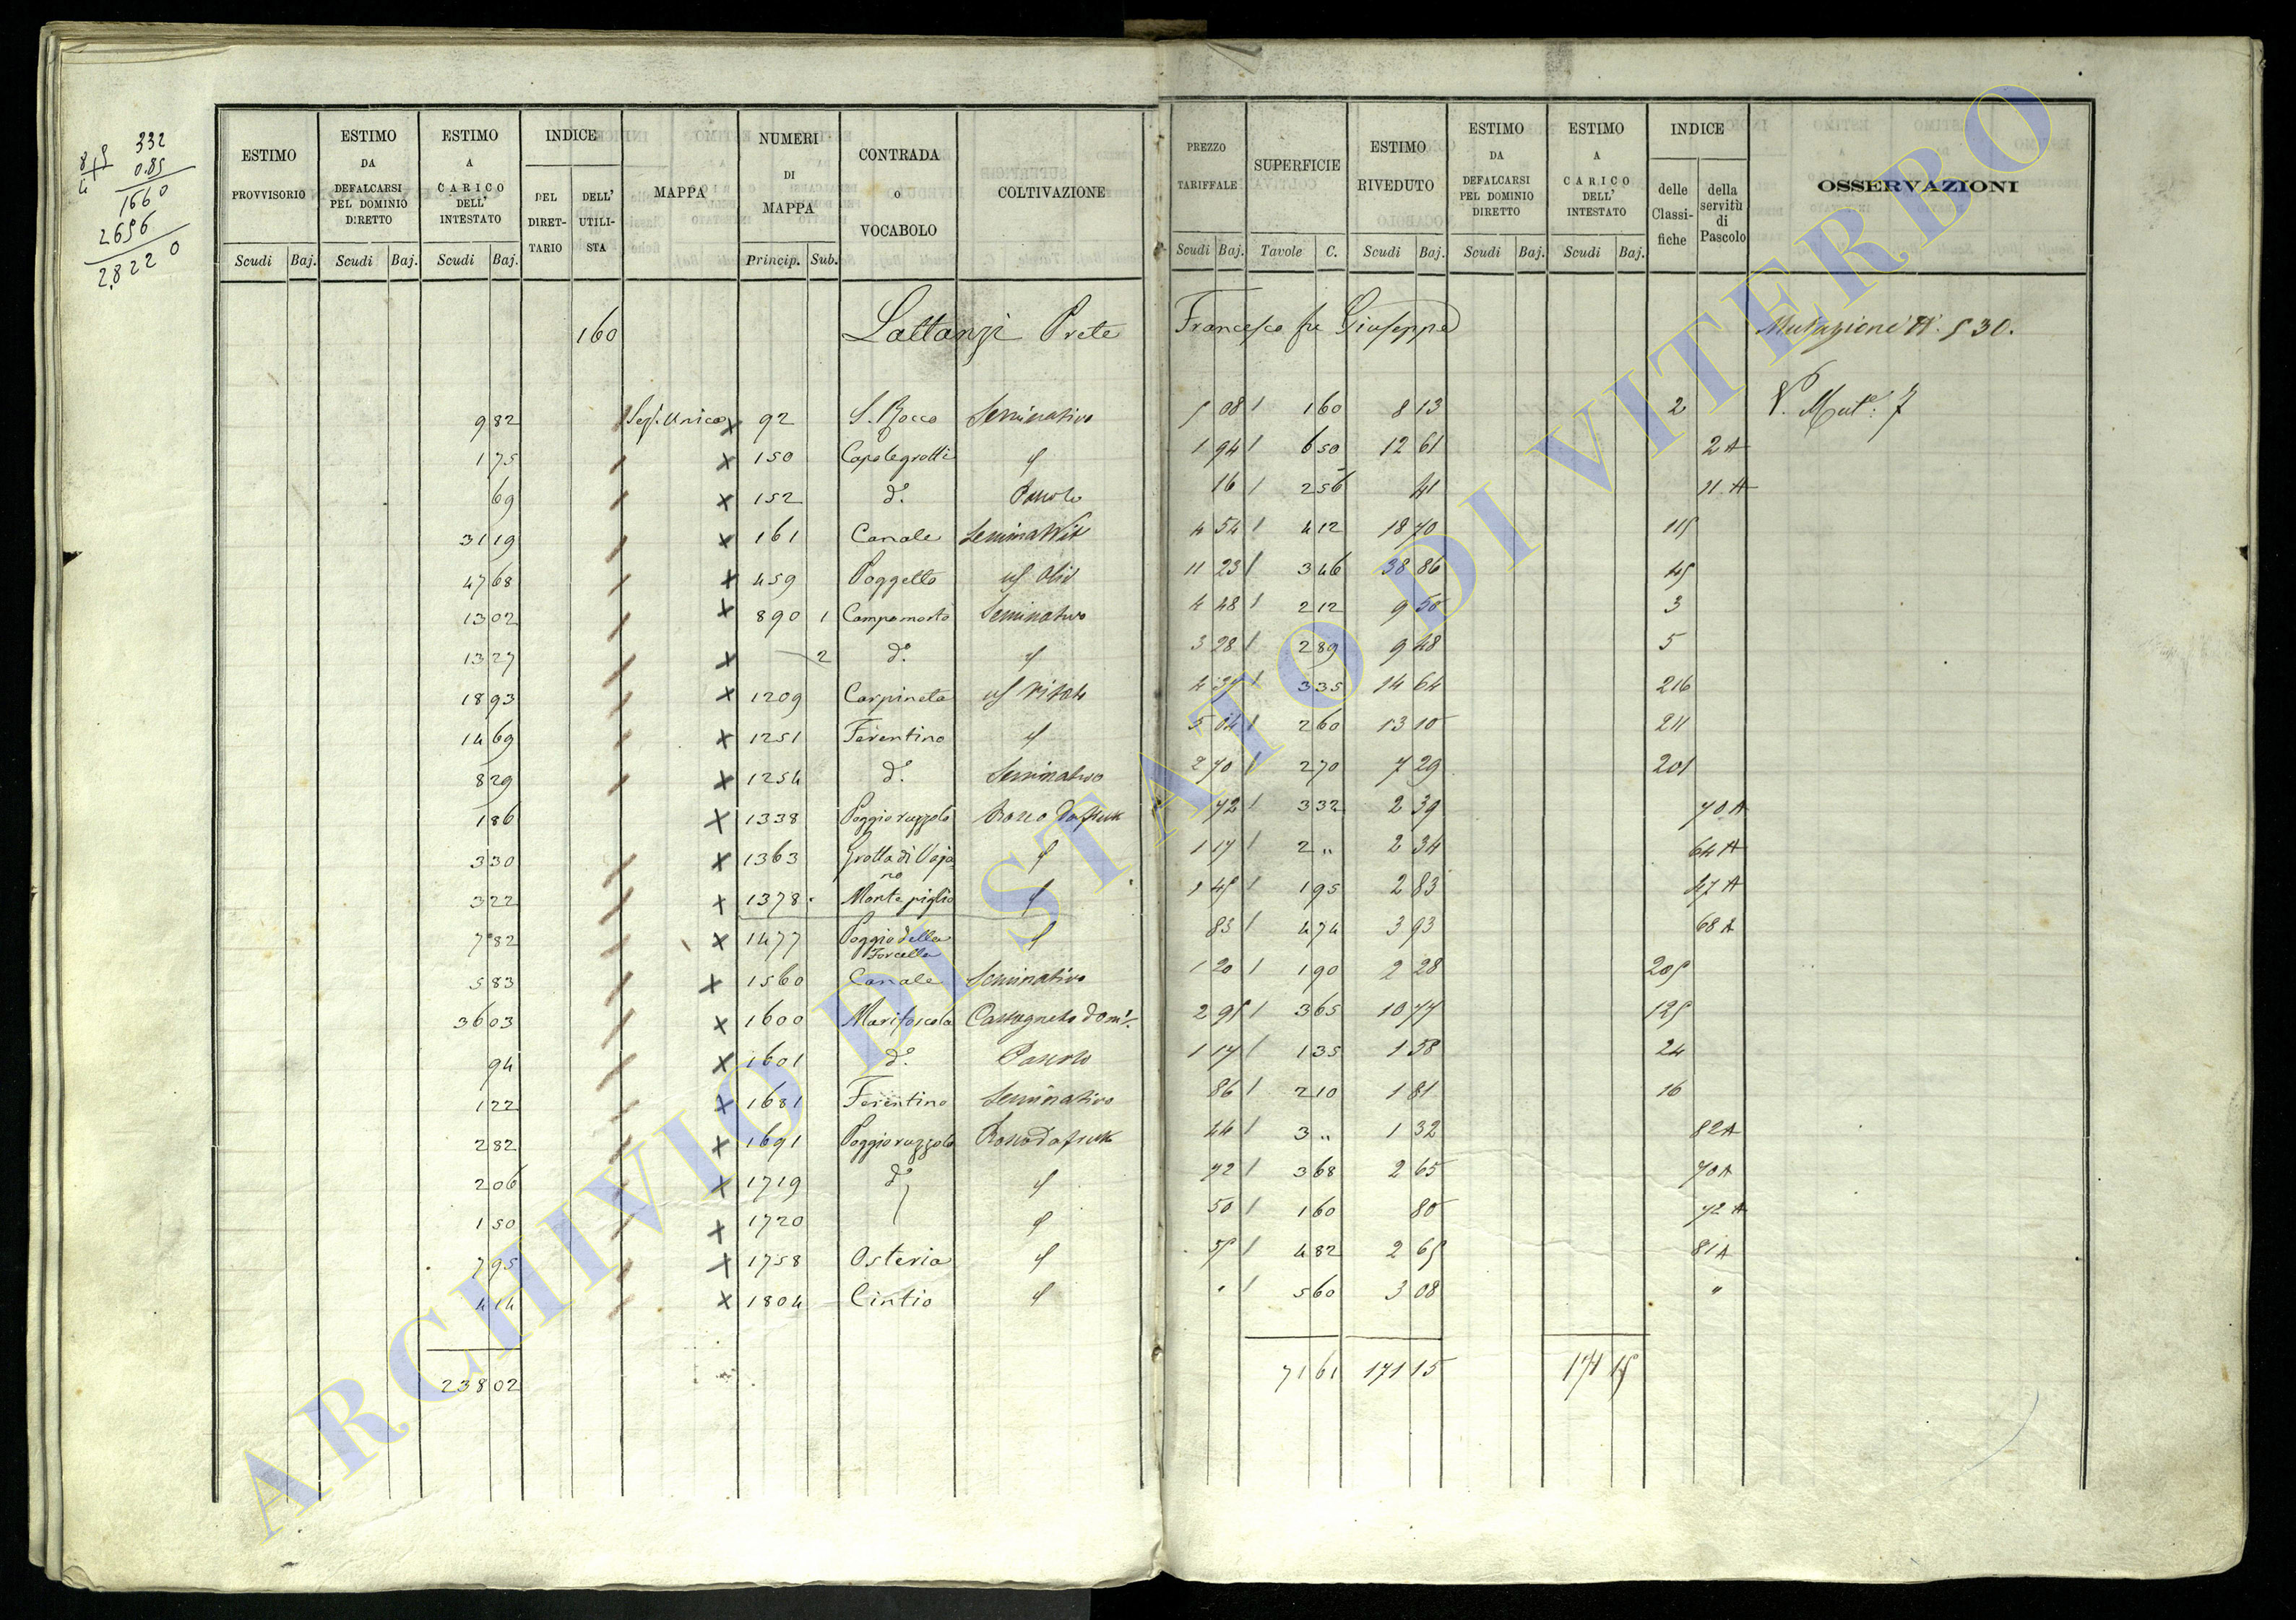 332
0.85
1660
2656
2.8220
ESTIMO PROVVISORIO
ESTIMO DA DEFALCARSI PEL DOMINIO DIRETTO
ESTIMO A CARICO DELL' INTESTATO
INDICE
DEL DIRET-TARIO
DELL' UTILI-STA
MAPPA
NUMERI DI MAPPA
CONTRADA o VOCABOLO
COLTIVAZIONE
PREZZO TARIFFALE
SUPERFICIE
ESTIMO RIVEDUTO
ESTIMO DA DEFALCARSI PEL DOMINIO DIRETTO
ESTIMO A CARICO DELL' INTESTATO
INDICE
delle Classi-fiche
della servitù di Pascolo
OSSERVAZIONI
Scudi Baj. Scudi Baj. Scudi Baj. Princip. Sub. Scudi Baj. Tavole C. Scudi Baj. Scudi Baj. Scudi Baj.
160 Lattanzi Prete Francesco fu Giuseppe Mutazione N. 530.
9 82 Sez. Unica 92 S. Rocco Seminativo 5 08 1 60 8 13 2 V. Mut. 7
1 75 150 Capolegrotti 1 94 6 50 12 61 2 A
69 152 d.o Pascolo 16 2 56 41 11 A
31 19 161 Canale Seminat Vit 4 54 4 12 18 70 115
47 68 459 Poggetto Oliv 11 23 3 46 38 86 45
13 02 890 1 Campomorto Seminativo 4 48 2 12 9 50 3
13 27 2 d.o 3 28 2 89 9 48 5
18 93 1209 Carpineta Vitato 4 37 3 35 14 64 216
14 69 1251 Ferentino 5 04 2 60 13 10 211
8 29 1254 d.o Seminativo 2 70 2 70 7 29 201
1 86 1338 Poggioruzzolo Bosco da frutto 72 3 32 2 39 70 A
3 30 1363 Grotta di Vajano 1 17 2 „ 2 34 64 A
3 22 1378 Monte piglio 1 45 1 95 2 83 47 A
7 82 1477 Poggio della Forcella 83 4 74 3 93 68 A
5 83 1560 Canale Seminativo 1 20 1 90 2 28 205
36 03 1600 Marifoscola Castagneto dom. 2 95 3 65 10 77 125
94 1601 d.o Pascolo 1 17 1 35 1 58 24
1 22 1681 Ferentino Seminativo 86 2 10 1 81 16
2 82 1691 Poggioruzzolo Bosco da frutto 44 3 „ 1 32 82 A
2 06 1719 d.o 72 3 68 2 65 70 A
1 50 1720 50 1 60 80 72 A
7 95 1758 Osteria 55 4 82 2 65 81 A
4 14 1804 Cintio 5 60 3 08 „
238 02 71 61 171 15 171 15
ARCHIVIO DI STATO DI VITERBO